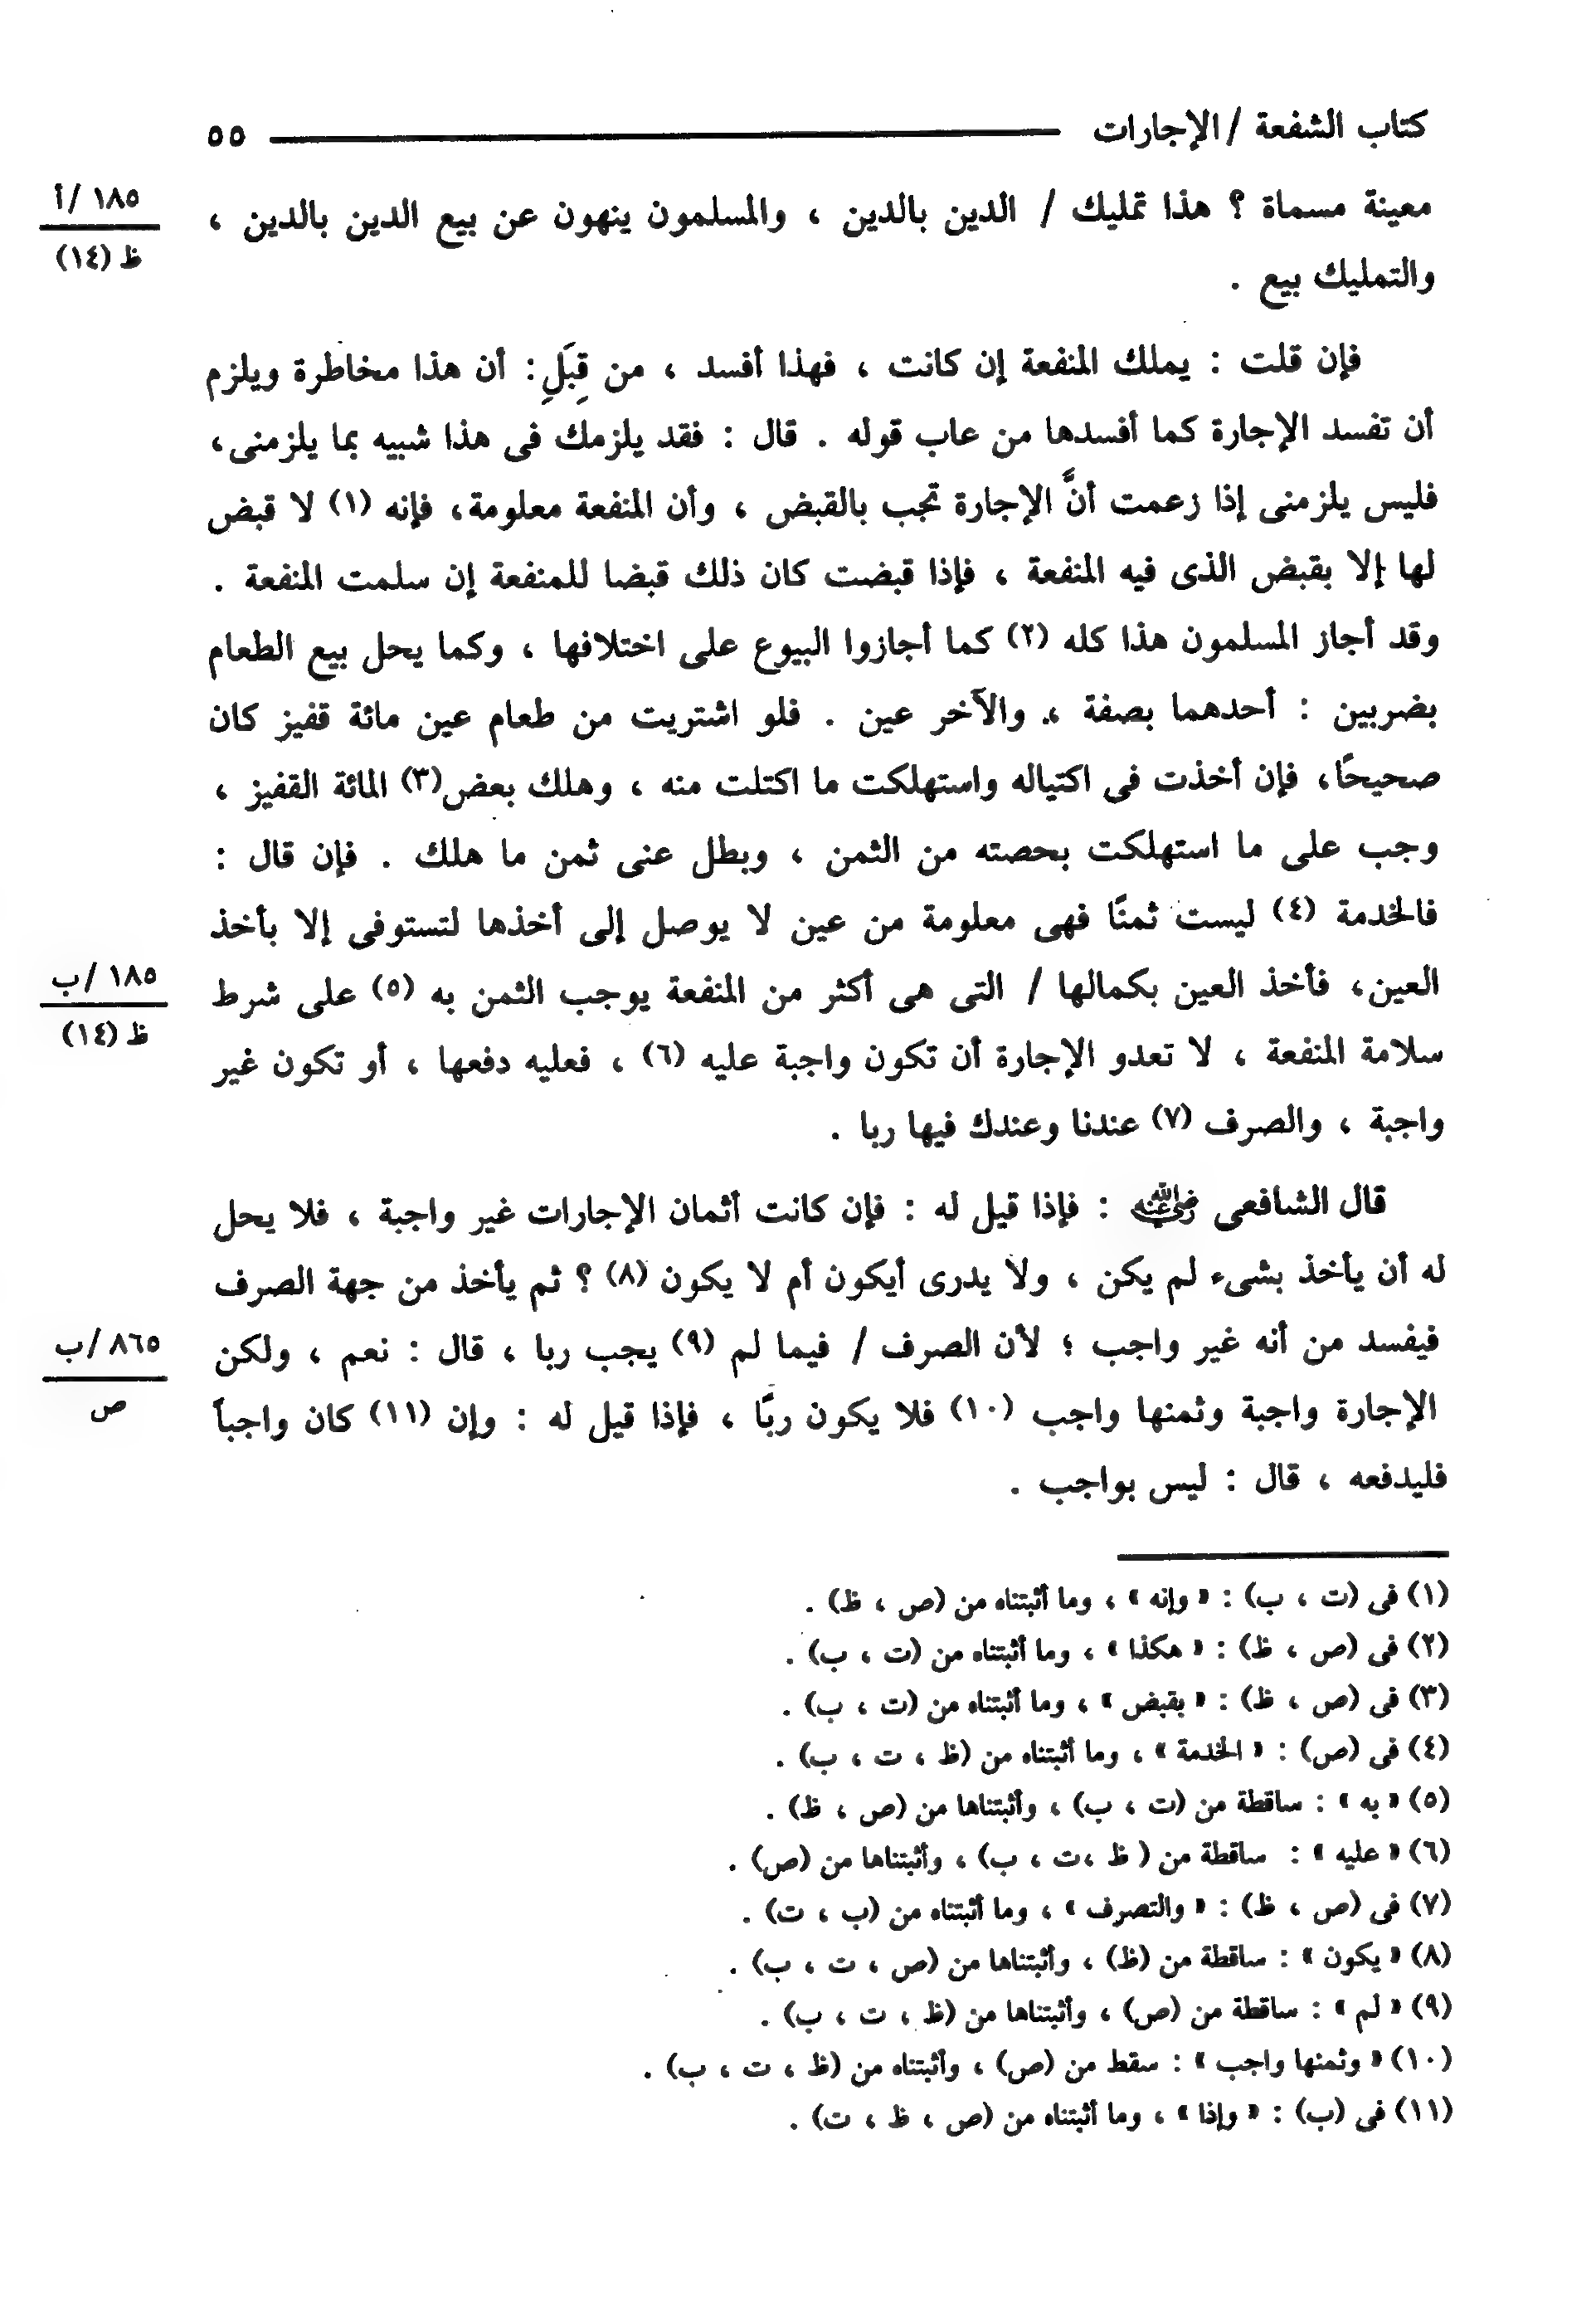 كتاب الشفعة / الإجارات ٥٥
معينة مسماة ؟ هذا تمليك / الدين بالدين ، والمسلمون ينهون عن بيع الدين بالدين ،
١٨٥ /أ
ظ (١٤)
والتمليك بيع .
فإن قلت : يملك المنفعة إن كانت ، فهذا أفسد ، من قِبَلِ : أن هذا مخاطرة ويلزم
أن تفسد الإجارة كما أفسدها من عاب قوله . قال : فقد يلزمك فى هذا شبيه بما يلزمنى،
فليس يلزمنى إذا زعمت أنَّ الإجارة تجب بالقبض ، وأن المنفعة معلومة، فإنه (١) لا قبض
لها إلا بقبض الذى فيه المنفعة ، فإذا قبضت كان ذلك قبضا للمنفعة إن سلمت المنفعة .
وقد أجاز المسلمون هذا كله (٢) كما أجازوا البيوع على اختلافها ، وكما يحل بيع الطعام
بضربين : أحدهما بصفة ، والآخر عين . فلو اشتريت من طعام عين مائة قفيز كان
صحيحًا، فإن أخذت فى اكتياله واستهلكت ما اكتلت منه ، وهلك بعض(٣) المائة القفيز ،
وجب على ما استهلكت بحصته من الثمن ، وبطل عنى ثمن ما هلك . فإن قال :
فالخدمة (٤) ليست ثمنًا فهى معلومة من عين لا يوصل إلى أخذها لتستوفى إلا بأخذ
العين، فأخذ العين بكمالها / التى هى أكثر من المنفعة يوجب الثمن به (٥) على شرط
١٨٥ /ب
ظ (١٤)
سلامة المنفعة ، لا تعدو الإجارة أن تكون واجبة عليه (٦) ، فعليه دفعها ، أو تكون غير
واجبة ، والصرف (٧) عندنا وعندك فيها ربا .
قال الشافعى رضي الله عنه : فإذا قيل له : فإن كانت أثمان الإجارات غير واجبة ، فلا يحل
له أن يأخذ بشىء لم يكن ، ولا يدرى أيكون أم لا يكون (٨) ؟ ثم يأخذ من جهة الصرف
فيفسد من أنه غير واجب ؛ لأن الصرف / فيما لم (٩) يجب ربا ، قال : نعم ، ولكن
٨٦٥ /ب
ص
الإجارة واجبة وثمنها واجب (١٠) فلا يكون ربًا ، فإذا قيل له : وإن (١١) كان واجباً
فليدفعه ، قال : ليس بواجب .
(١) فى (ت ، ب) : « وإنه » ، وما أثبتناه من (ص ، ظ) .
(٢) فى (ص ، ظ) : « هكذا » ، وما أثبتناه من (ت ، ب) .
(٣) فى (ص ، ظ) : « بقبض » ، وما أثبتناه من (ت ، ب) .
(٤) فى (ص) : « الخدمة » ، وما أثبتناه من (ظ ، ت ، ب) .
(٥) « به » : ساقطة من (ت ، ب) ، وأثبتناها من (ص ، ظ) .
(٦) « عليه » : ساقطة من ( ظ ،ت ، ب) ، وأثبتناها من (ص) .
(٧) فى (ص ، ظ) : « والتصرف » ، وما أثبتناه من (ب ، ت) .
(٨) « يكون » : ساقطة من (ظ) ، وأثبتناها من (ص ، ت ، ب) .
(٩) « لم » : ساقطة من (ص) ، وأثبتناها من (ظ ، ت ، ب) .
(١٠) « وثمنها واجب » : سقط من (ص) ، وأثبتناه من (ظ ، ت ، ب) .
(١١) فى (ب) : « وإذا » ، وما أثبتناه من (ص ، ظ ، ت) .